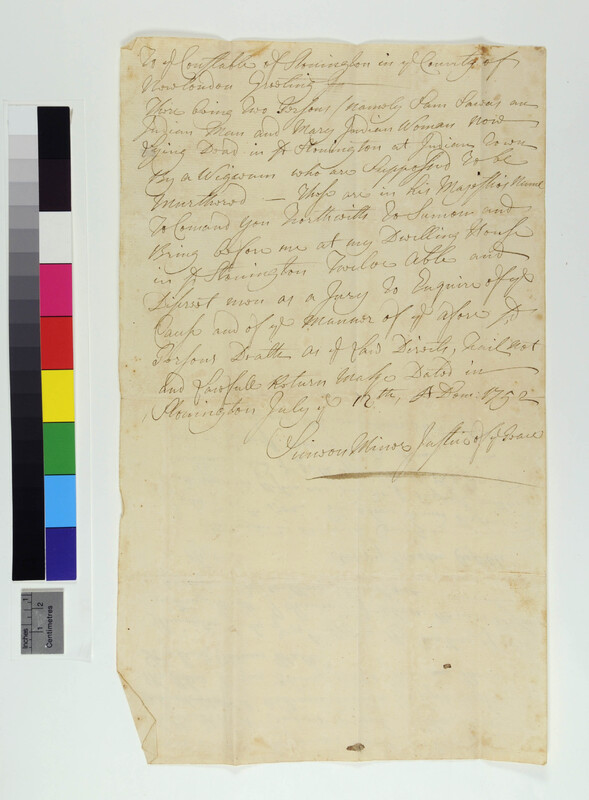 To ye Constable of Stonington in ye County of
New London Greeting
There being two Persons / namely Sam an
Indian Man and Mary Indian Woman now
Lying Dead in sd Stonington at Indian Town
By a Wigwam who are Supposed to be
Murthered — These are in his Majesties Name
To Comand you forthwith to Sumon and
Bring before me at my Dwelling House
in sd Stonington Twelve Able and
Discreet men as a Jury to Enquire of ye
Cause and of ye Manner of ye afore sd
Persons Death as ye Law Directs, fail not
and Lawfull Return Make Dated in
Stonington July ye 12th, A Dom: 1752
Simeon Minor Justice of ye Peace
Inches
1
2
1
Centimetres